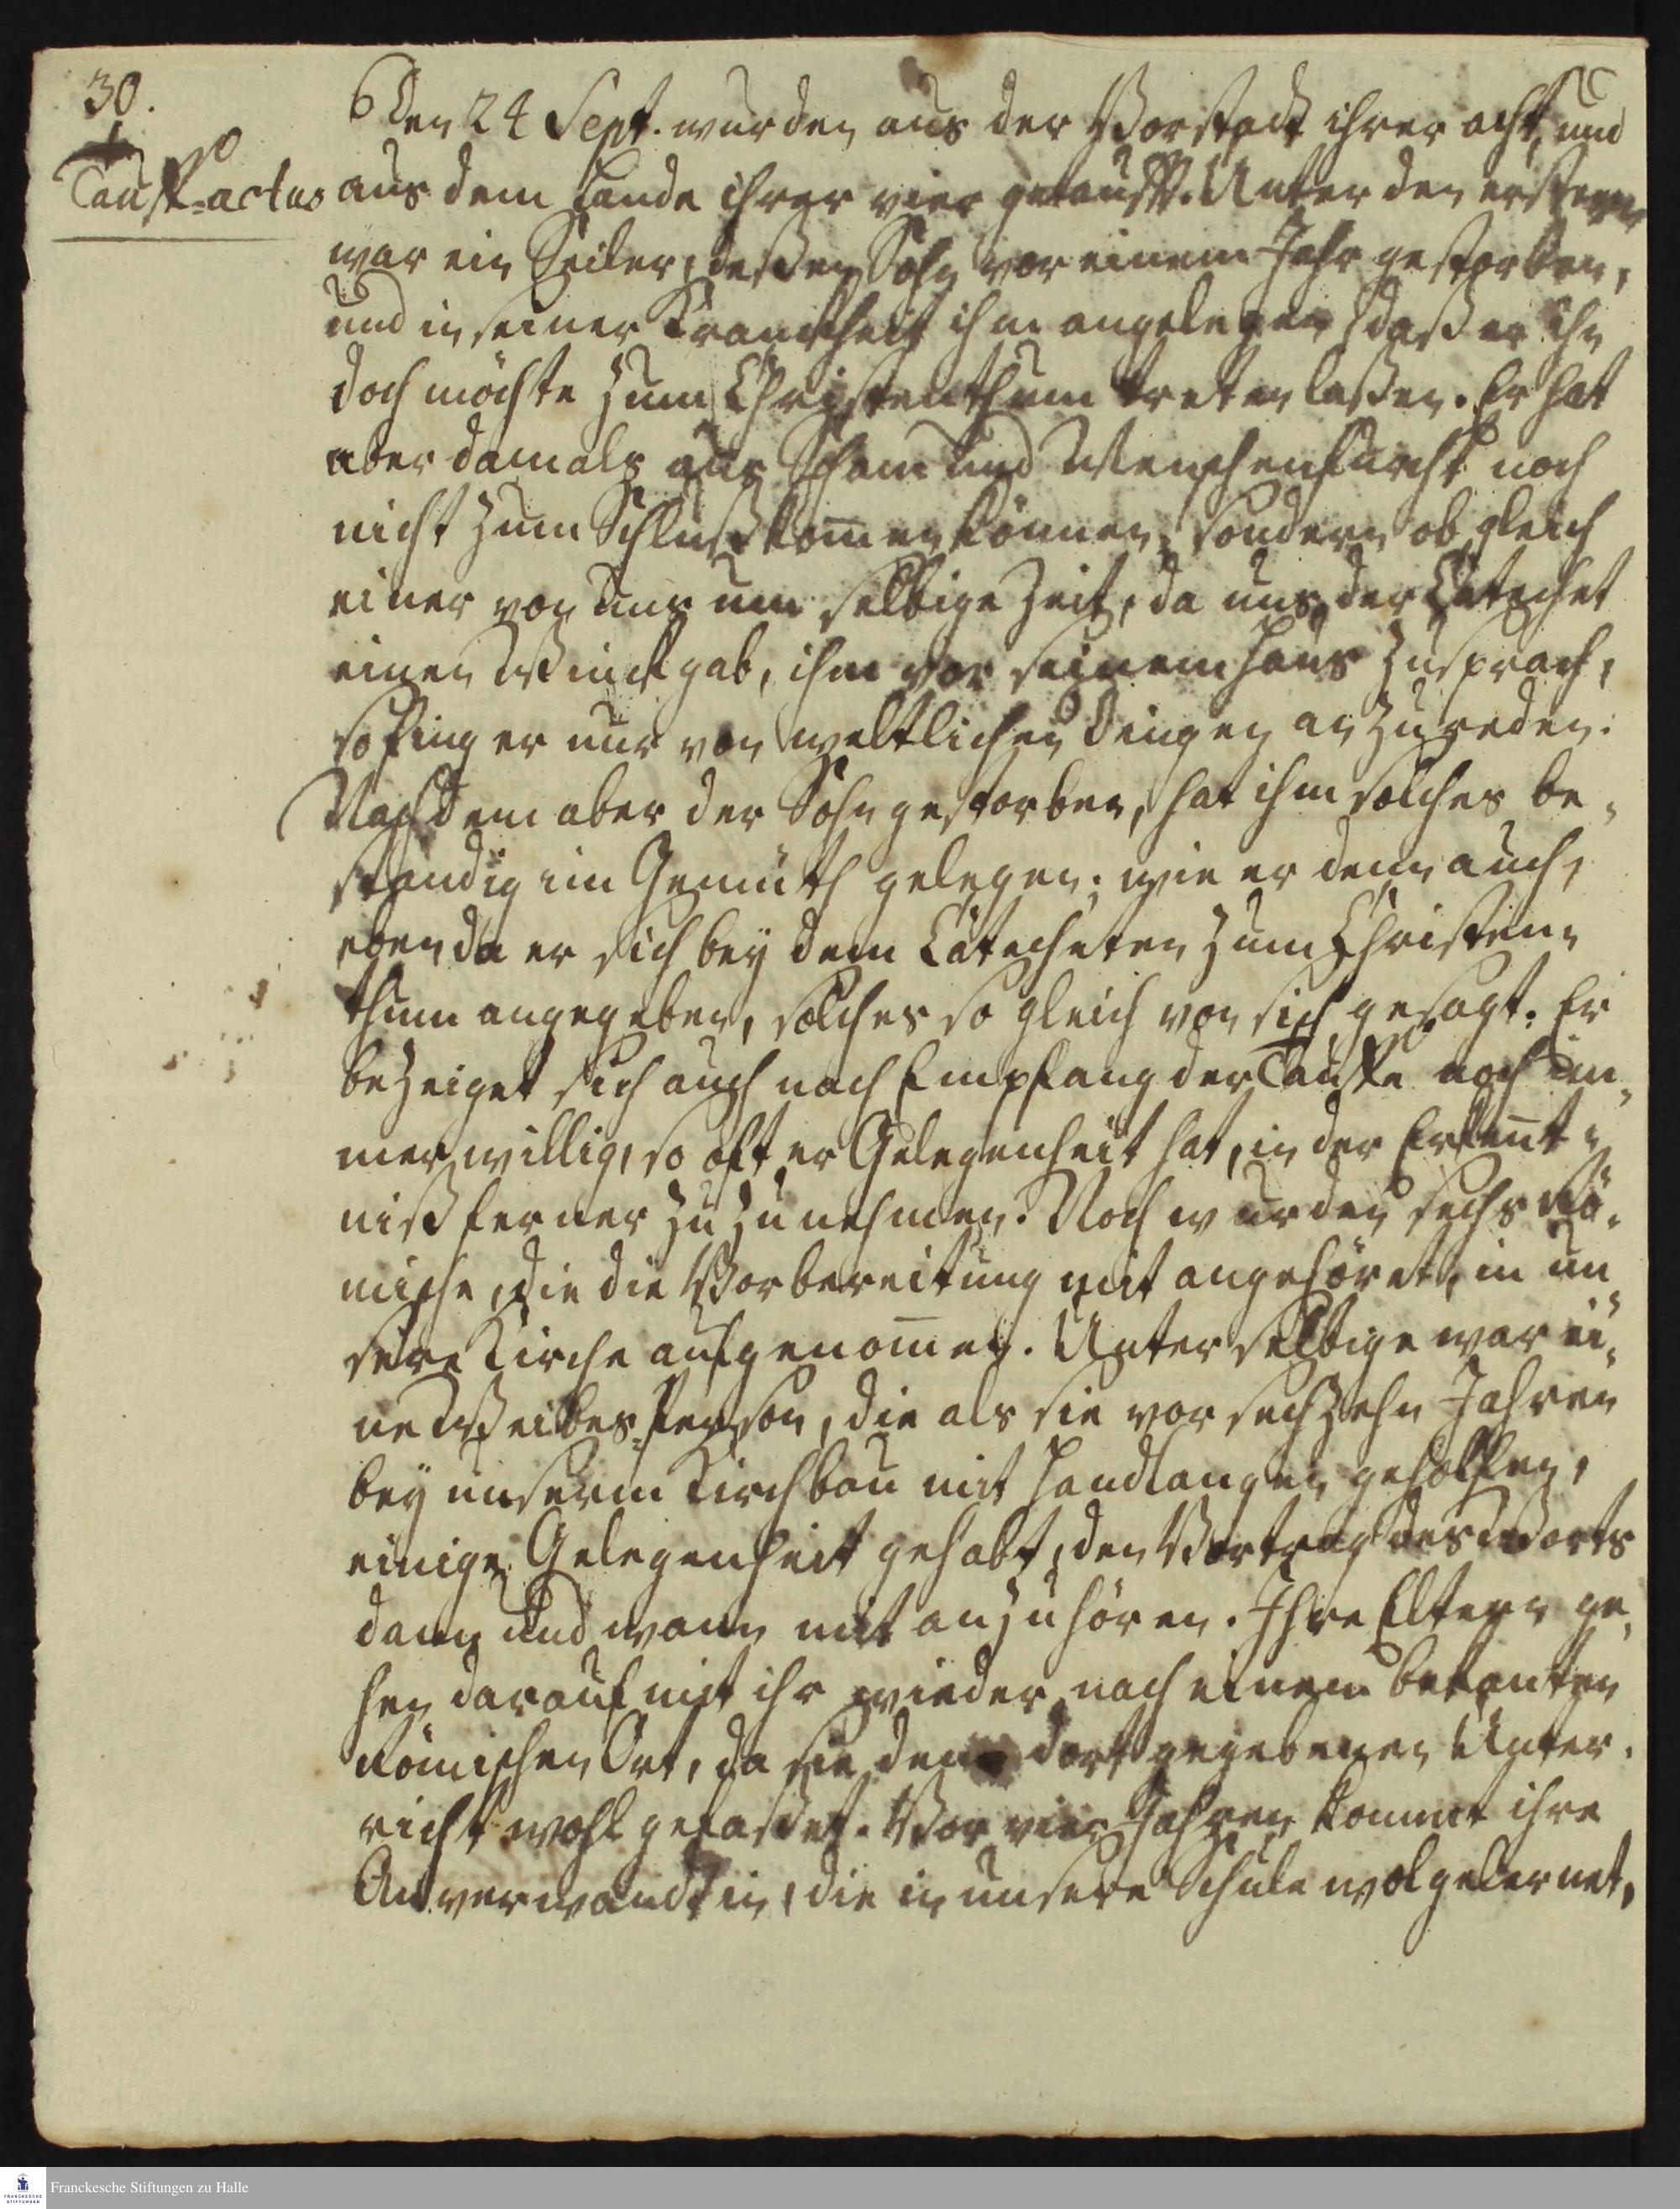 30.
Tauff-actus
Den 24 Sept. wurden aus der Vorstadt ihrer acht, und
aus dem Lande ihrer vier getaufft. Unter den erstern
war ein Seiler, deßen Sohn vor einem Jahr gestorben,
und in seiner Kranckheit ihm angelegen, daß er ihn
doch möchte zum Christenthum treten laßen. Er hat
aber damals aus Scham und Menschenfurcht noch
nicht zum Schluß kom̄en können; sondern ob gleich
einer von uns um selbige Zeit, da uns der Catechet
einen Winck gab, ihm vor seinem Haus zusprach,
so fing er nur von weltlichen Dingen an zu reden.
Nachdem aber der Sohn gestorben, hat ihm solches be-
ständig im Gemüth gelegen; wie er denn auch,
eben da er sich bey dem Catecheten zum Christen-
thum angegeben, solches so gleich von sich gesagt. Er
bezeiget sich auch nach Empfang der Tauffe noch im-
mer willig, so oft er Gelegenheit hat, in der Erken̄t-
niß ferner zu zu nehmen. Noch wurden sechs Rö-
mische, die die Vorbereitung mit angehöret, in un-
sere Kirche aufgenom̄en. Unter selbige war ei-
ne Weibes-Person, die als sie vor sechzehn Jahren
bey unserm Kirchbau mit Handlangen geholffen,
einige Gelegenheit gehabt, den Vortrag des Worts
dann und wann mit anzuhören. Ihre Eltern ge-
hen darauf mit ihr wieder nach einem bekanten
Römischen Ort, da sie den dort gegebenen Unter-
richt wohl gefaßet. Vor vier Jahren kommt ihre
Anverwandtin, die in unsere Schule wol gelernet,
Franckesche Stiftungen zu Halle